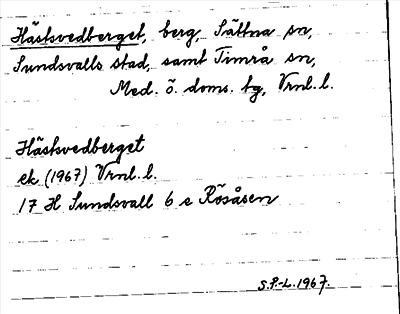 Hästsvedberget, berg, Sättna sn,
Sundsvalls stad, samt Timrå sn,
Med. ö. doms. tg, Vrnl. l.
Hästsvedberget
ek (1967) Vrnl. l.
17 H Sundsvall 6 e Rösåsen
S.P-L. 1967.